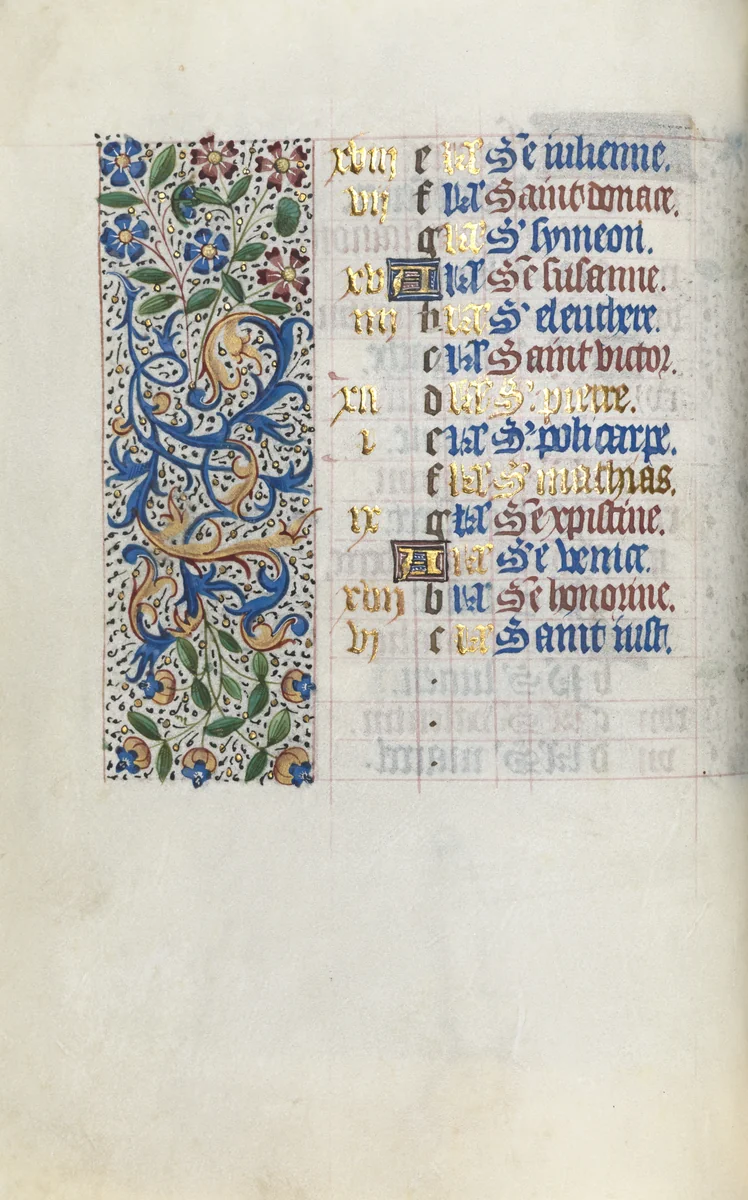 xviii e kl' Ste iulienne.
vii f kl' Saint donace.
g kl' St symeon.
xv A kl' Ste susanne.
iiii b kl' St eleuthere.
c kl' Saint victor.
xii d kl' St pierre.
i e kl' St policarpe.
f kl' St mathias.
ix g kl' Ste xpistine.
A kl' Ste venice.
xvii b kl' Ste honorine.
vi c kl' Saint iust.